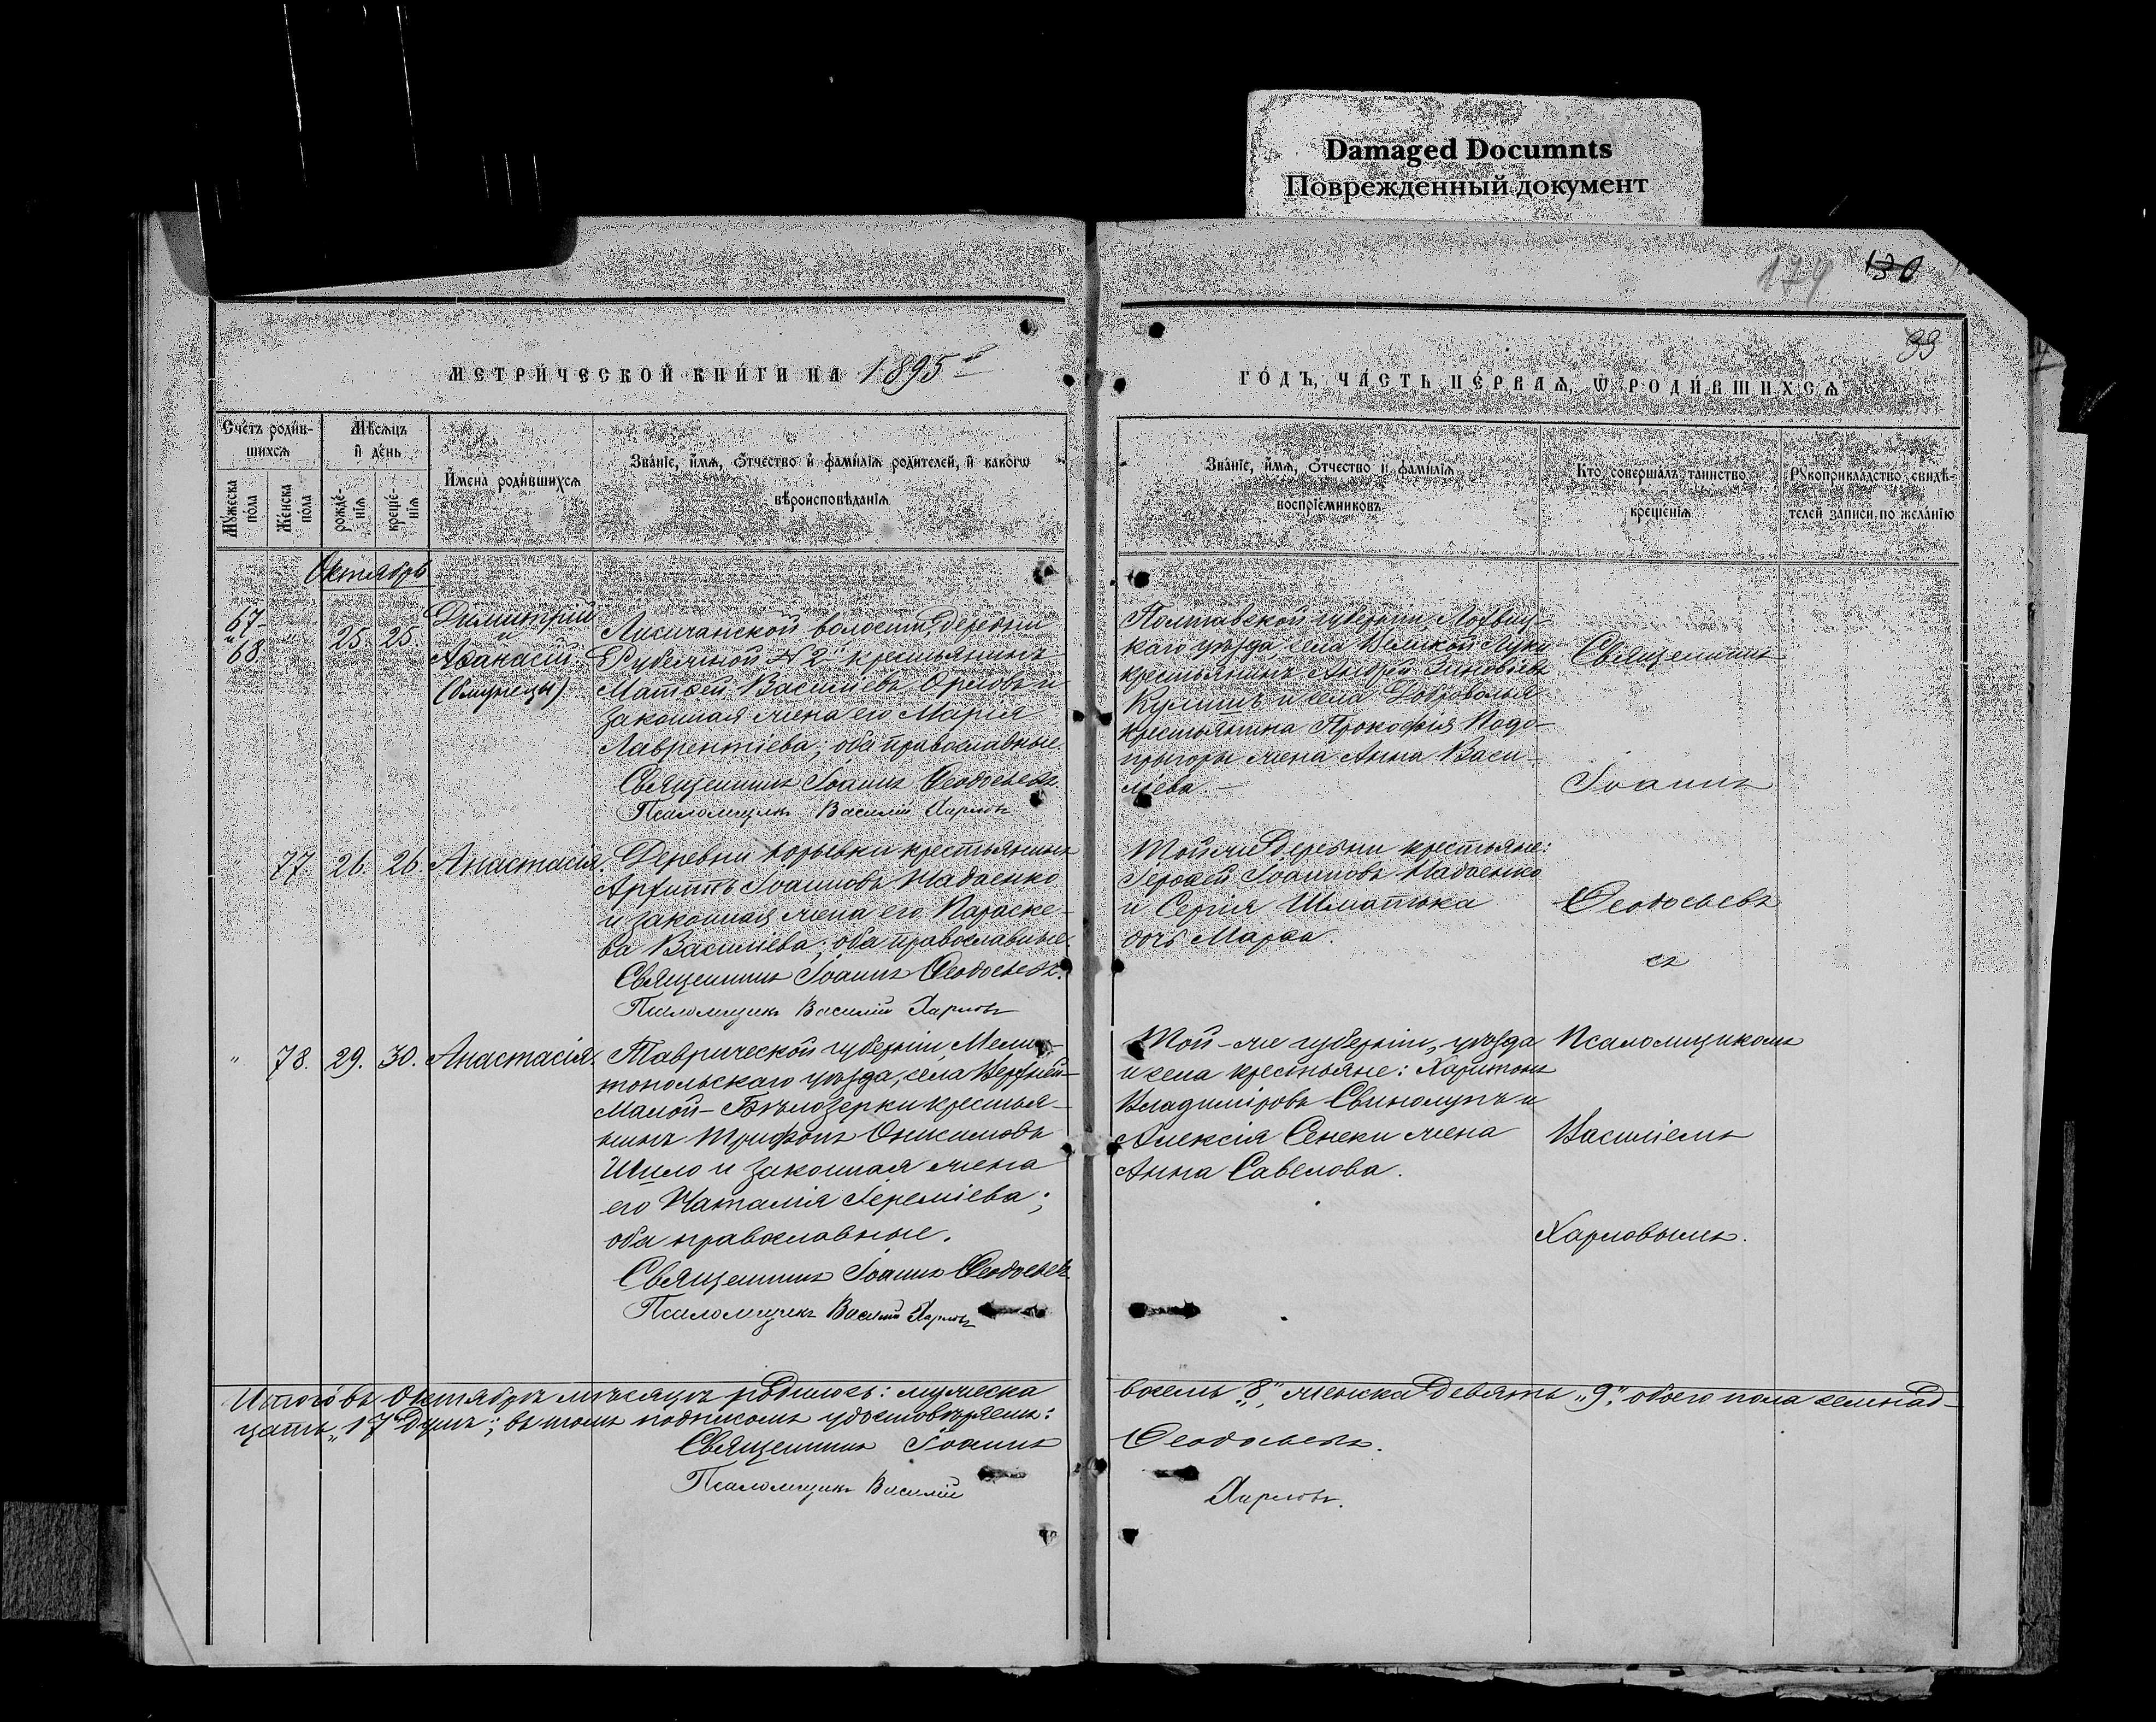 Damaged Documnts
Поврежденный документ
179 130
93
МЕТРИЧЕСКОЙ КНИГИ НА 1895 г
ГОДЪ, ЧАСТЬ ПЕРВАЯ, Ѡ РОДИВШИХСЯ
Счетъ родив-
шихся
Мѣсяцъ
и день
Мужеска
пола
Женска
пола
рожде-
нія
креще-
нія
Имена родившихся
Званіе, имя, отчество и фамилія родителей, и какогѡ
вѣроисповѣданія
Званіе, имя, отчество и фамилія
воспріемниковъ
Кто совершалъ таинство
крещенія
Рукоприкладство свидѣ-
телей записи по желанію
Октябрь
67-
и
68. " 25. 25.
Димитрій
и
Аѳанасій.
(близнецы)
Лисичанской волости, деревни
Рубежной №2й крестьянинъ
Матѳей Василіевъ Орловъ и
законная жена его Марія
Лаврентіева; оба православные.
Священникъ Іоаннъ Ѳеодосьевъ.
Псаломщикъ Василій Харловъ
Полтавской губерніи, Лохвиц-
каго уѣзда, села Великой Луки
крестьянинъ Андрей Зиновіевъ
Кулишъ и села Доброволья
крестьянина Прокофія Подо-
пригоры жена Анна Васи-
ліева. -
Священникъ
Іоаннъ
Ѳеодосьевъ
съ
Псаломщикомъ
Василіемъ
Харловымъ.
" 77. 26. 26. Анастасія.
Деревни крестьянинъ
Архиппъ Іоанновъ Жадоенко
и законная жена его Параске-
ва Василіева; оба православные.
Священникъ Іоаннъ Ѳеодосьевъ.
Псаломщикъ Василій Харловъ
Той же деревни крестьяне:
Іероѳей Іоанновъ Жадоенко
и Сергія Шматька
дочь Марѳа.
" 78. 29. 30. Анастасія.
Таврической губерніи, Мели-
топольскаго уѣзда, села Верхней-
Малой-Бѣлозерки крестья-
нинъ Трифонъ Онисимовъ
Шило и законная жена
его Наталія Іереміева;
оба православные.
Священникъ Іоаннъ Ѳеодосьевъ.
Псаломщикъ Василій Харловъ
Той-же губерніи, уѣзда
и села крестьяне: Харитонъ
Владиміровъ Свинолупъ и
Алексія Сенеки жена
Анна Савелова.
Итого въ Октябрѣ мѣсяцѣ родилось: мужеска
восемь "8", женска девять "9", обоего пола семнад-
цать "17" душъ; въ томъ подписомъ удостовѣряемъ:
Священникъ Іоаннъ Ѳеодосьевъ.
Псаломщикъ Василій Харловъ.